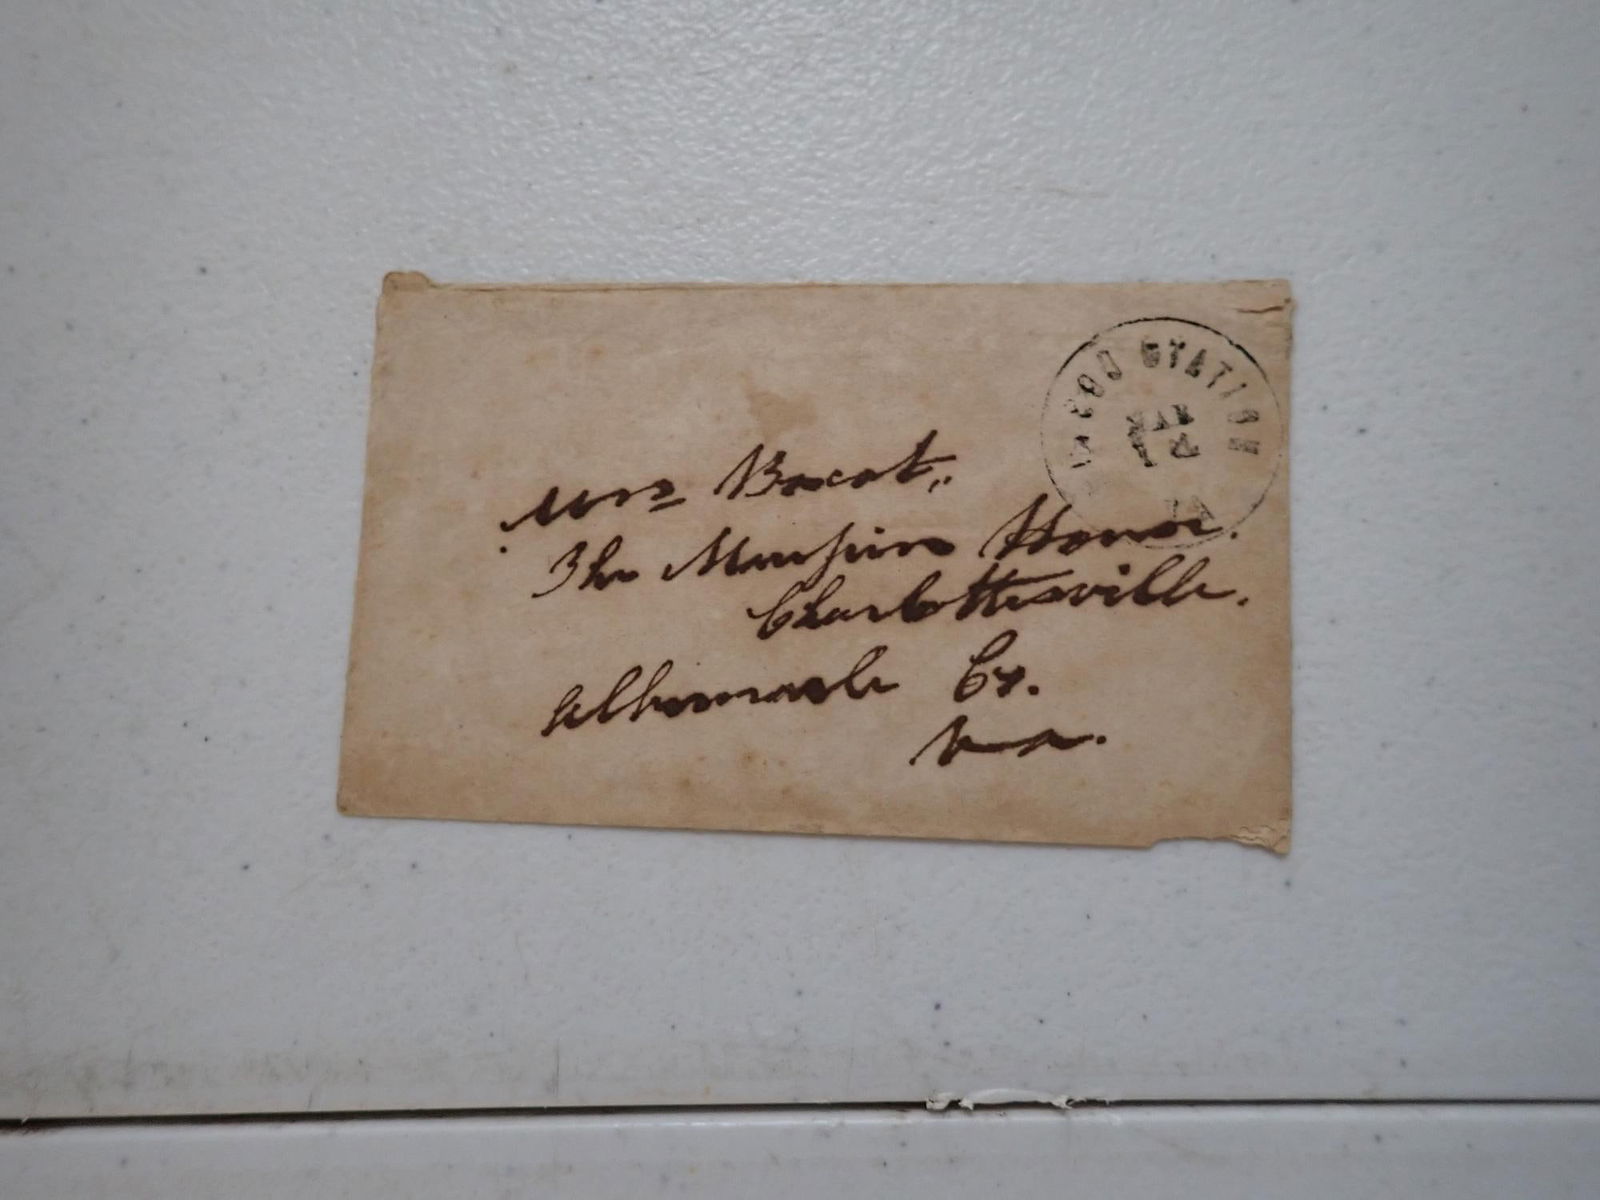 STATION
MAR
12
VA
Mrs Bocot,,
The Maupin House.
Charlottesville.
Albemarle Co.
Va.